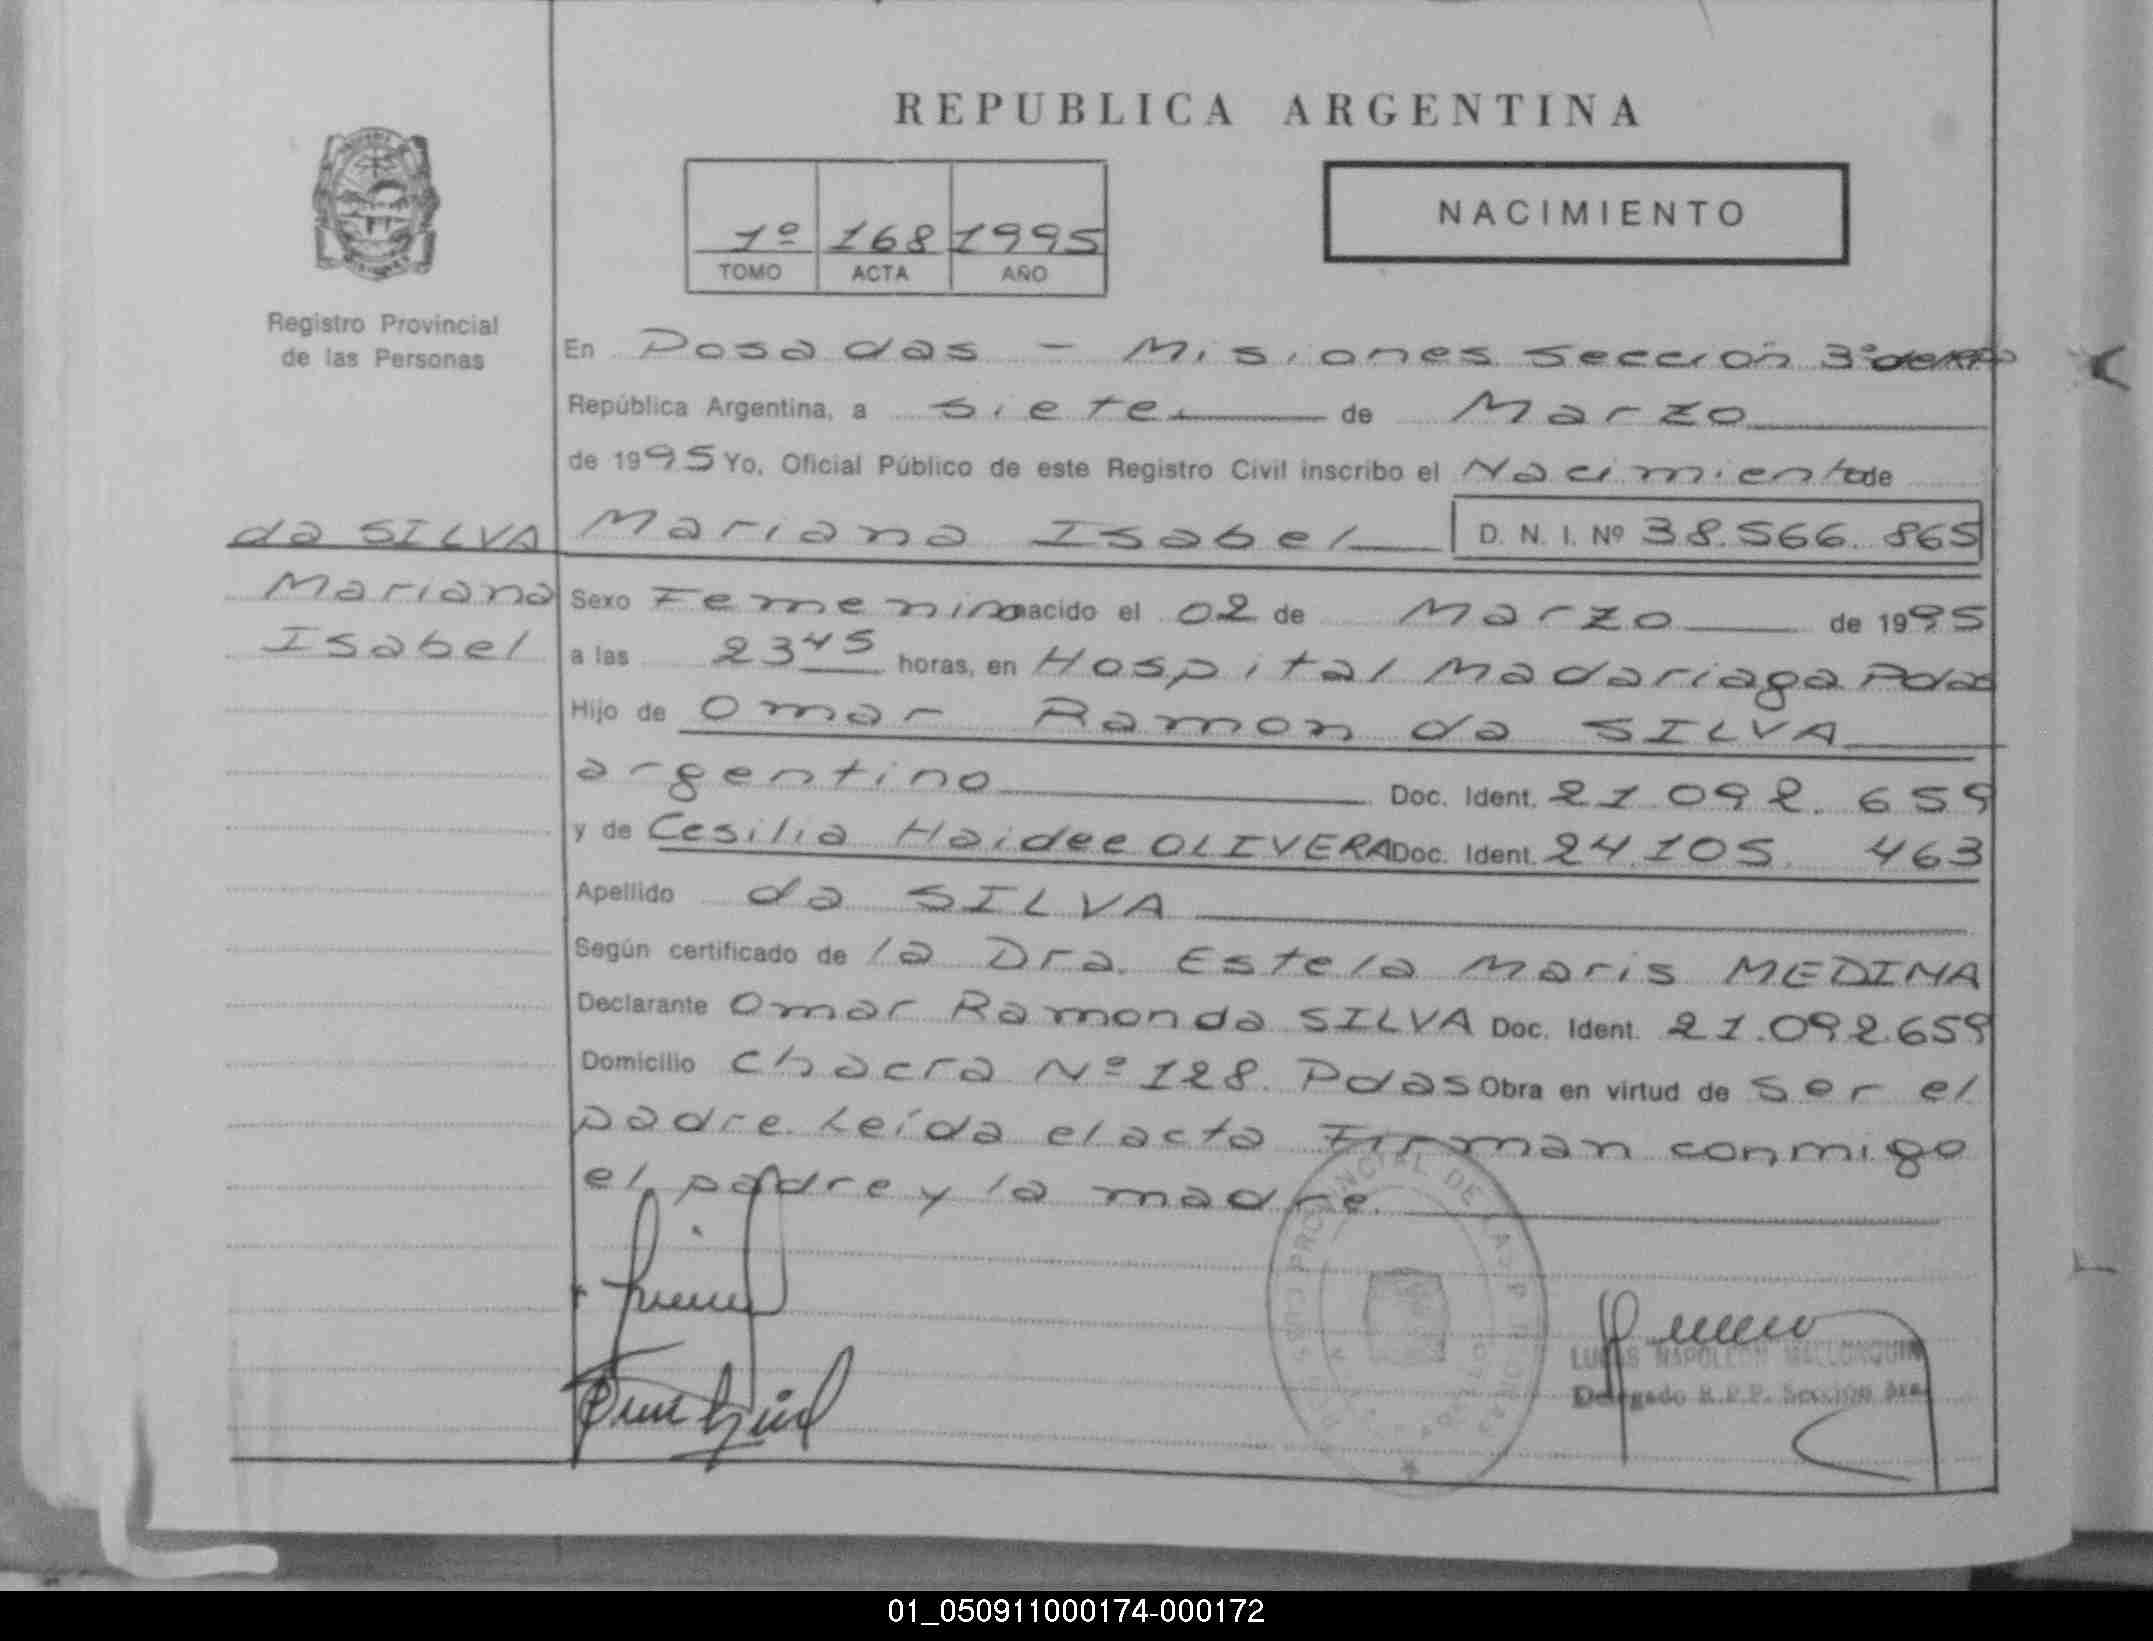 REPUBLICA ARGENTINA
1º 168 1995
TOMO ACTA AÑO
NACIMIENTO
Registro Provincial
de las Personas
En Posadas - Misiones Sección 3º
República Argentina, a siete de Marzo
de 1995 Yo, Oficial Público de este Registro Civil inscribo el Nacimiento de
da SILVA
Mariana
Isabel
Mariana Isabel D. N. I. Nº 38.566.865
Sexo Femenino nacido el 02 de Marzo de 1995
a las 23 45 horas, en Hospital Madariaga Pdas
Hijo de Omar Ramon da SILVA
argentino Doc. Ident. 21.092.659
y de Cesilia Haidee OLIVERA Doc. Ident. 24.105.463
Apellido da SILVA
Según certificado de la Dra. Estela Maris MEDINA
Declarante Omar Ramon da SILVA Doc. Ident. 21.092.659
Domicilio Chacra Nº 128. Pdas Obra en virtud de Ser el
padre. Leída el acta Firman conmigo
el padre y la madre.
LUCAS NAPOLEON MALLORQUIN
Delegado R.P.P. Sección 3ra.
01_050911000174-000172